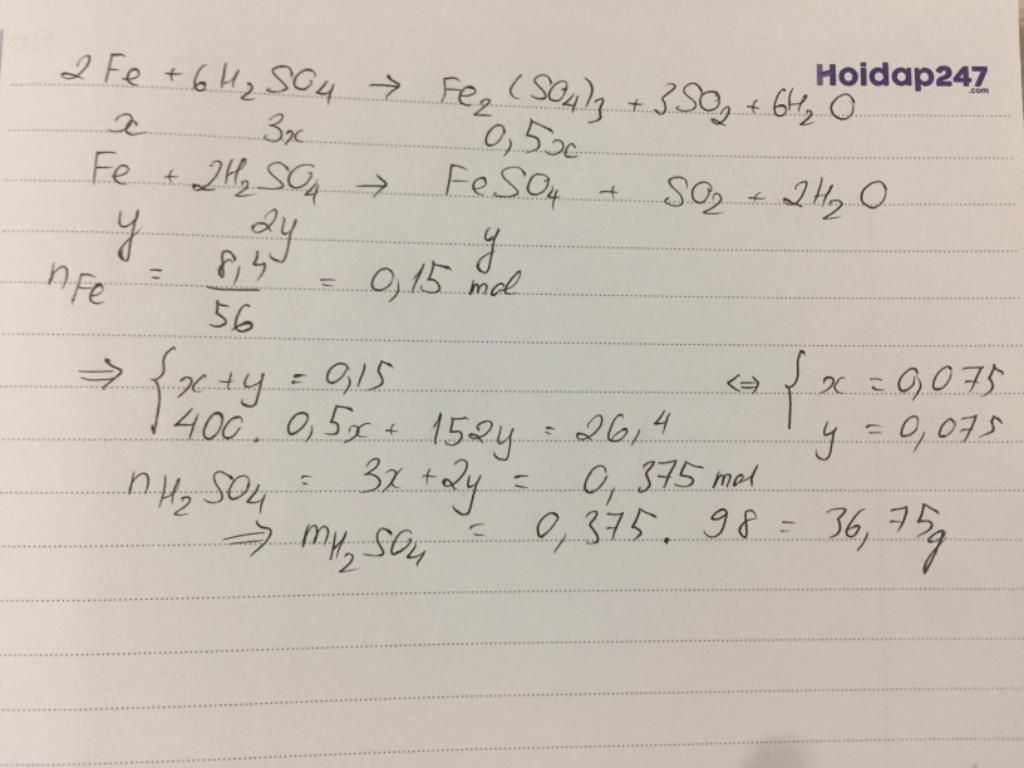 Hoidap247
.com
2Fe + 6H₂SO₄ → Fe₂(SO₄)₃ + 3SO₂ + 6H₂O
x 3x 0,5x
Fe + 2H₂SO₄ → FeSO₄ + SO₂ + 2H₂O
y 2y y
nFe = 8,4/56 = 0,15 mol
⇒ { x + y = 0,15 ⇔ { x = 0,075
400. 0,5x + 152y = 26,4 y = 0,075
nH₂SO₄ = 3x + 2y = 0,375 mol
⇒ mH₂SO₄ = 0,375. 98 = 36,75g